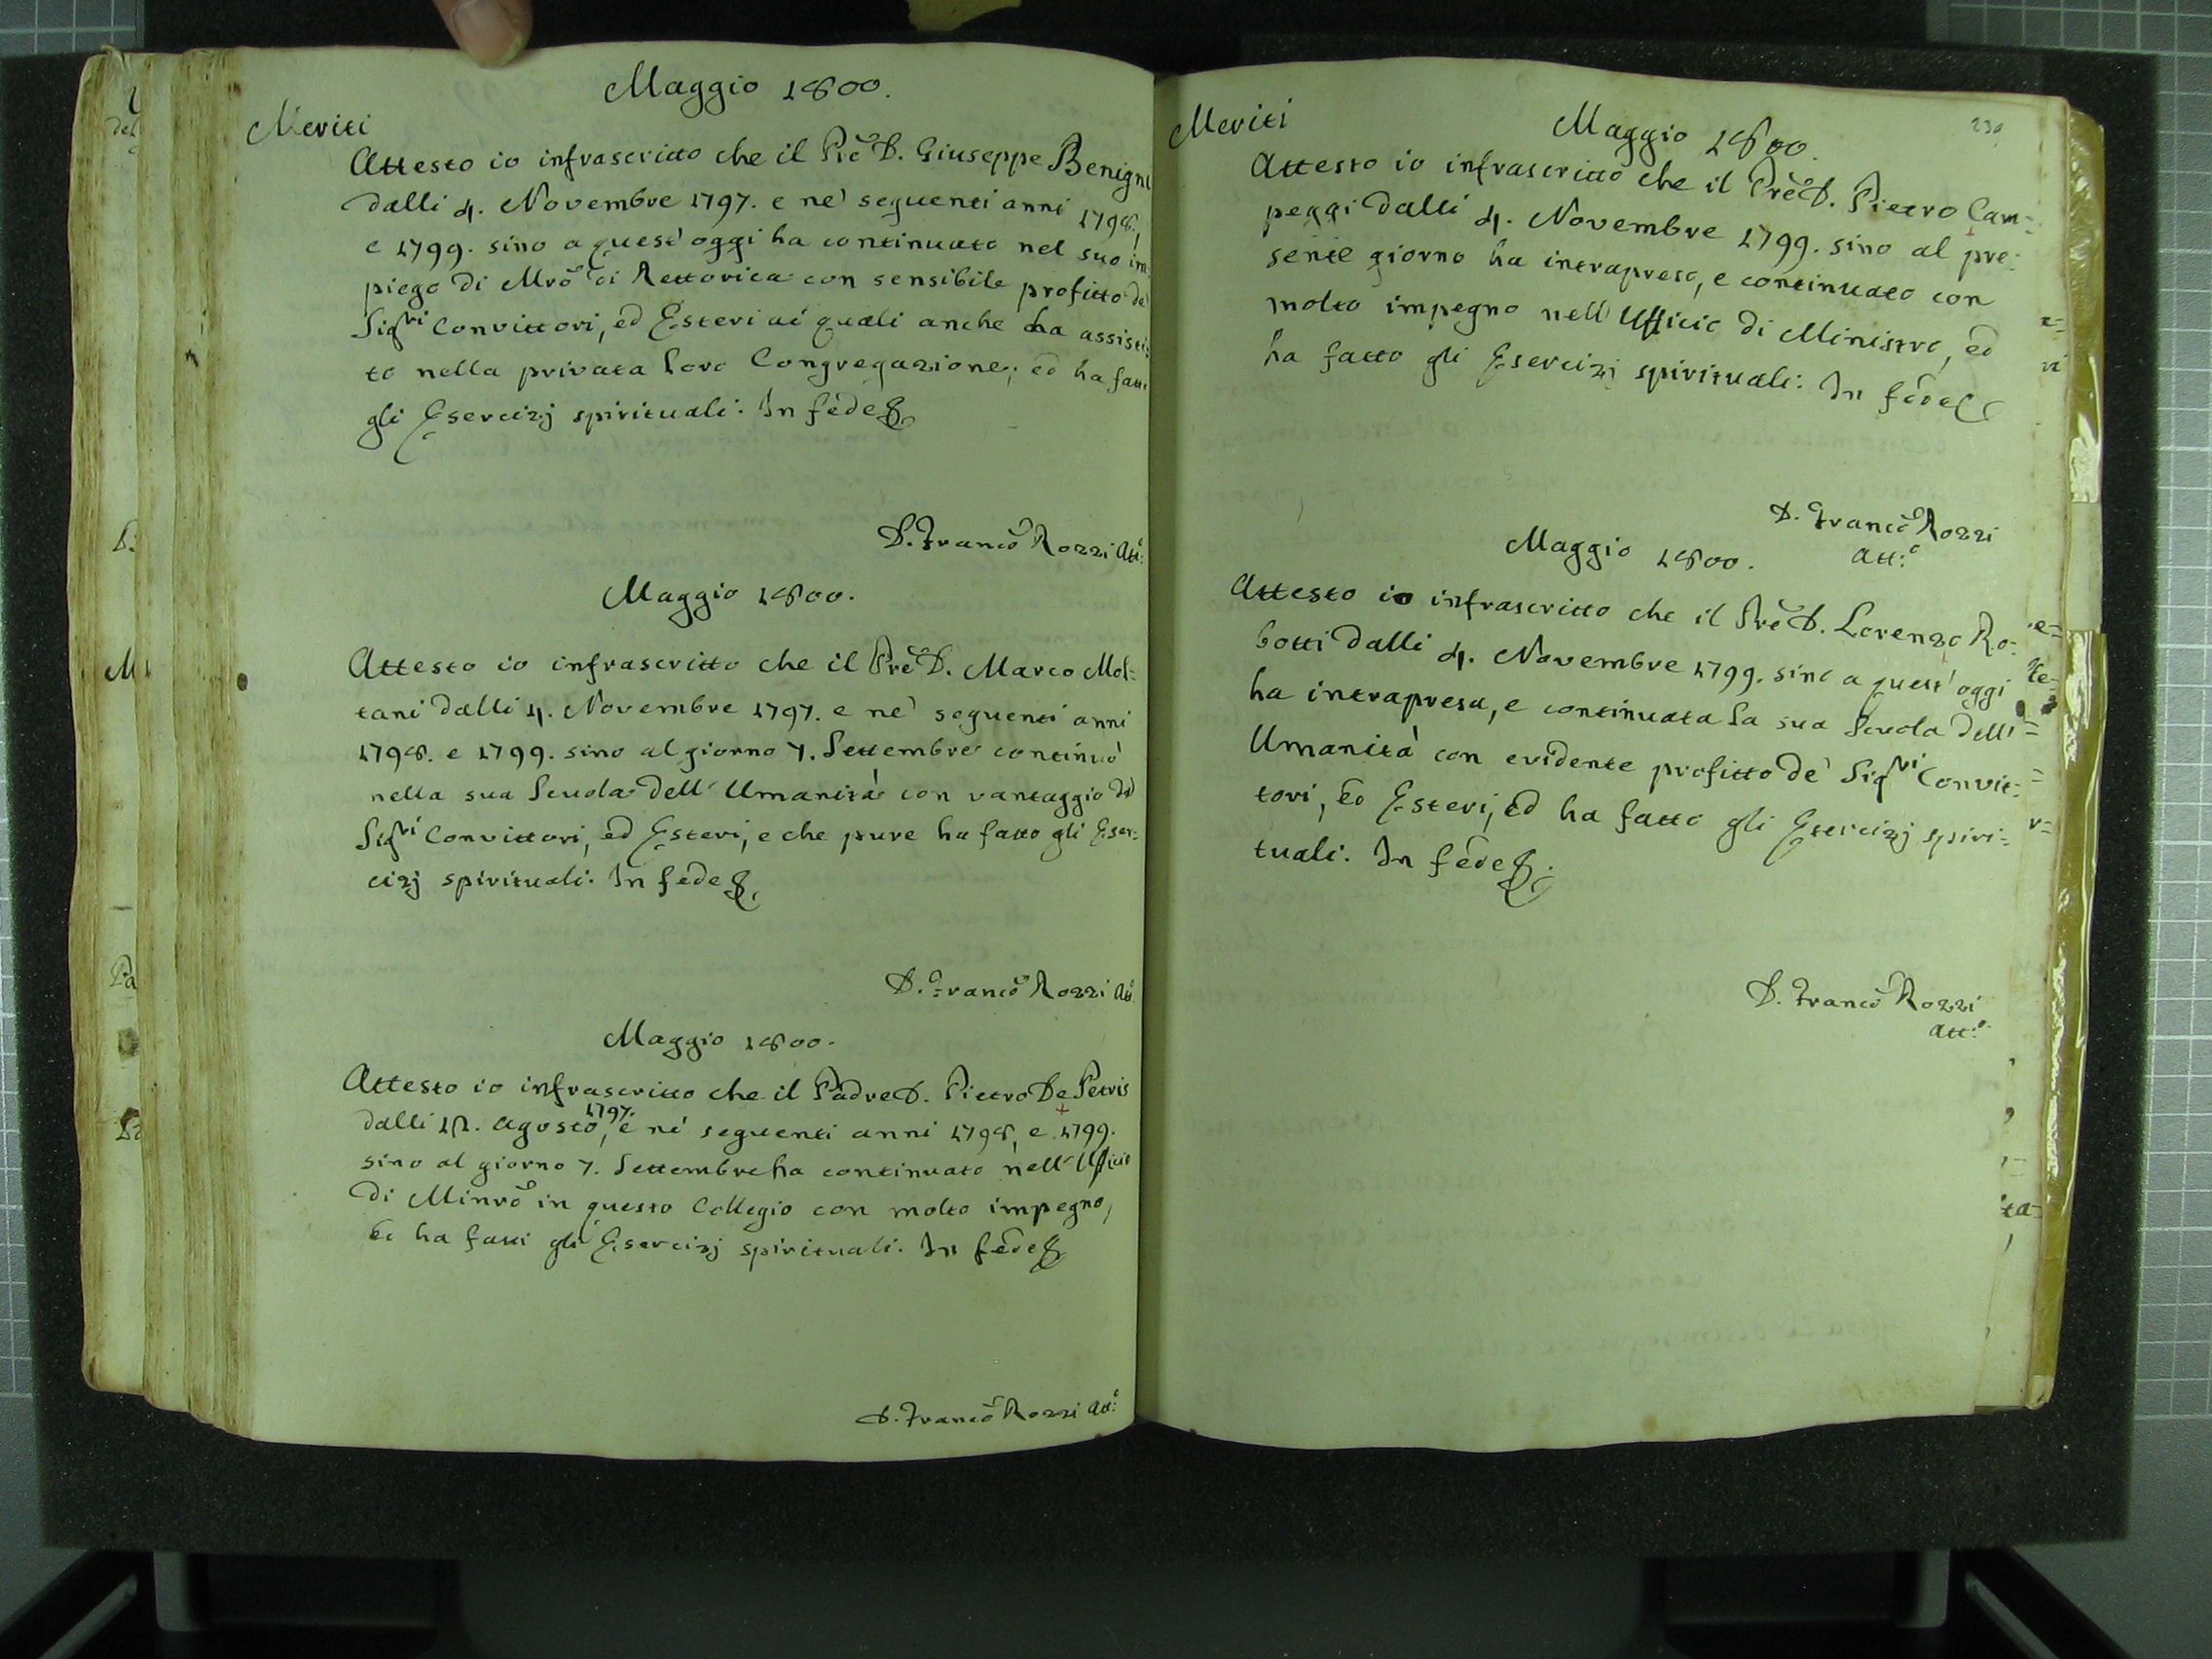 Maggio 1800.
Meriti
Attesto io infrascritto che il Prẽ D. Giuseppe Benigni
dalli 4. Novembre 1797. e ne' seguenti anni 1798.
e 1799. sino a quest'oggi ha continuato nel suo im
piego di Mrõ di Rettorica con sensibile profitto de'
Sigri Convittori, ed Esteri ai quali anche ha assisti:
to nella privata loro Congregazione; ed ha fatti
gli Esercizj spirituali. In fede &
D. Francõ Rozzi Att:o
Maggio 1800.
Attesto io infrascritto che il Prẽ D. Marco Mol=
tani dalli 4. Novembre 1797. e ne' seguenti anni
1798. e 1799. sino al giorno 7. Settembre continuò
nella sua Scuola dell'Umanità con vantaggio de'
Sigri Convittori, ed Esteri, e che pure ha fatto gli Eser=
cizj spirituali. In fede &
D. Francõ Rozzi Att:o
Maggio 1800.
Attesto io infrascritto che il Padre D. Pietro De Petris
dalli 12. Agosto, 1797. e ne' seguenti anni 1798, e 1799.
sino al giorno 7. Settembre ha continuato nell'Ufficio
di Minrõ in questo Collegio con molto impegno,
ed ha fatti gli Esercizj spirituali. In fede &
D. Francõ Rozzi Att:o
Meriti
Maggio 1800.
230
Attesto io infrascritto che il Prẽ D. Pietro Cam=
peggi dalli 4. Novembre 1799. sino al pre:
sente giorno ha intrapreso, e continuato con
molto impegno nell'Ufficio di Ministro, ed
ha fatto gli Esercizj spirituali. In fede &
D. Francõ Rozzi
Att:o
Maggio 1800.
Attesto io infrascritto che il Prẽ D. Lorenzo Ro:
botti dalli 4. Novembre 1799. sino a quest'oggi
ha intrapresa, e continuata la sua Scuola dell'
Umanità con evidente profitto de' Sigri Convit:
tori, ed Esteri, ed ha fatto gli Esercizj spiri=
tuali. In fede &.
D. Francõ Rozzi
Att:o